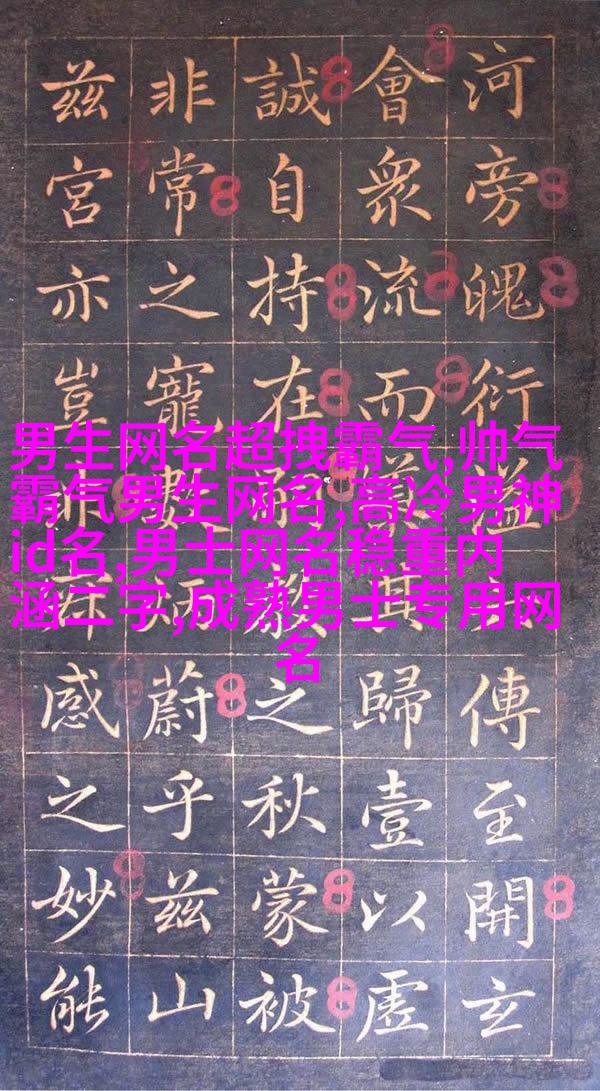 河旁魄衍溢傳至開玄
會衆流而其歸壹以虛
誠自持在之秋蒙被
非常之寵數蔚乎茲山
茲宮亦豈感之妙能
男生网名超拽霸气,帅气
霸气男生网名,高冷男神
id名,男士网名稳重内
涵二字,成熟男士专用网
名